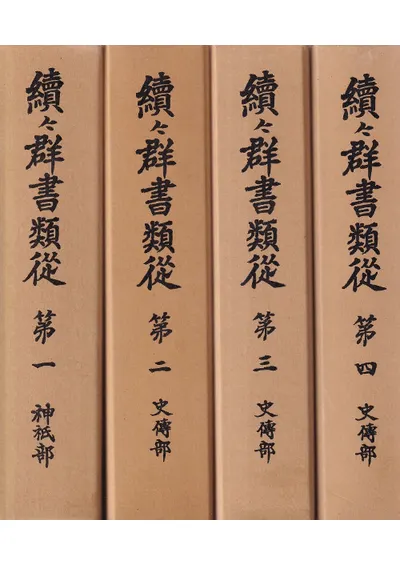 續々群書類從 第一 神祇部
續々群書類從 第二 史傳部
續々群書類從 第三 史傳部
續々群書類從 第四 史傳部